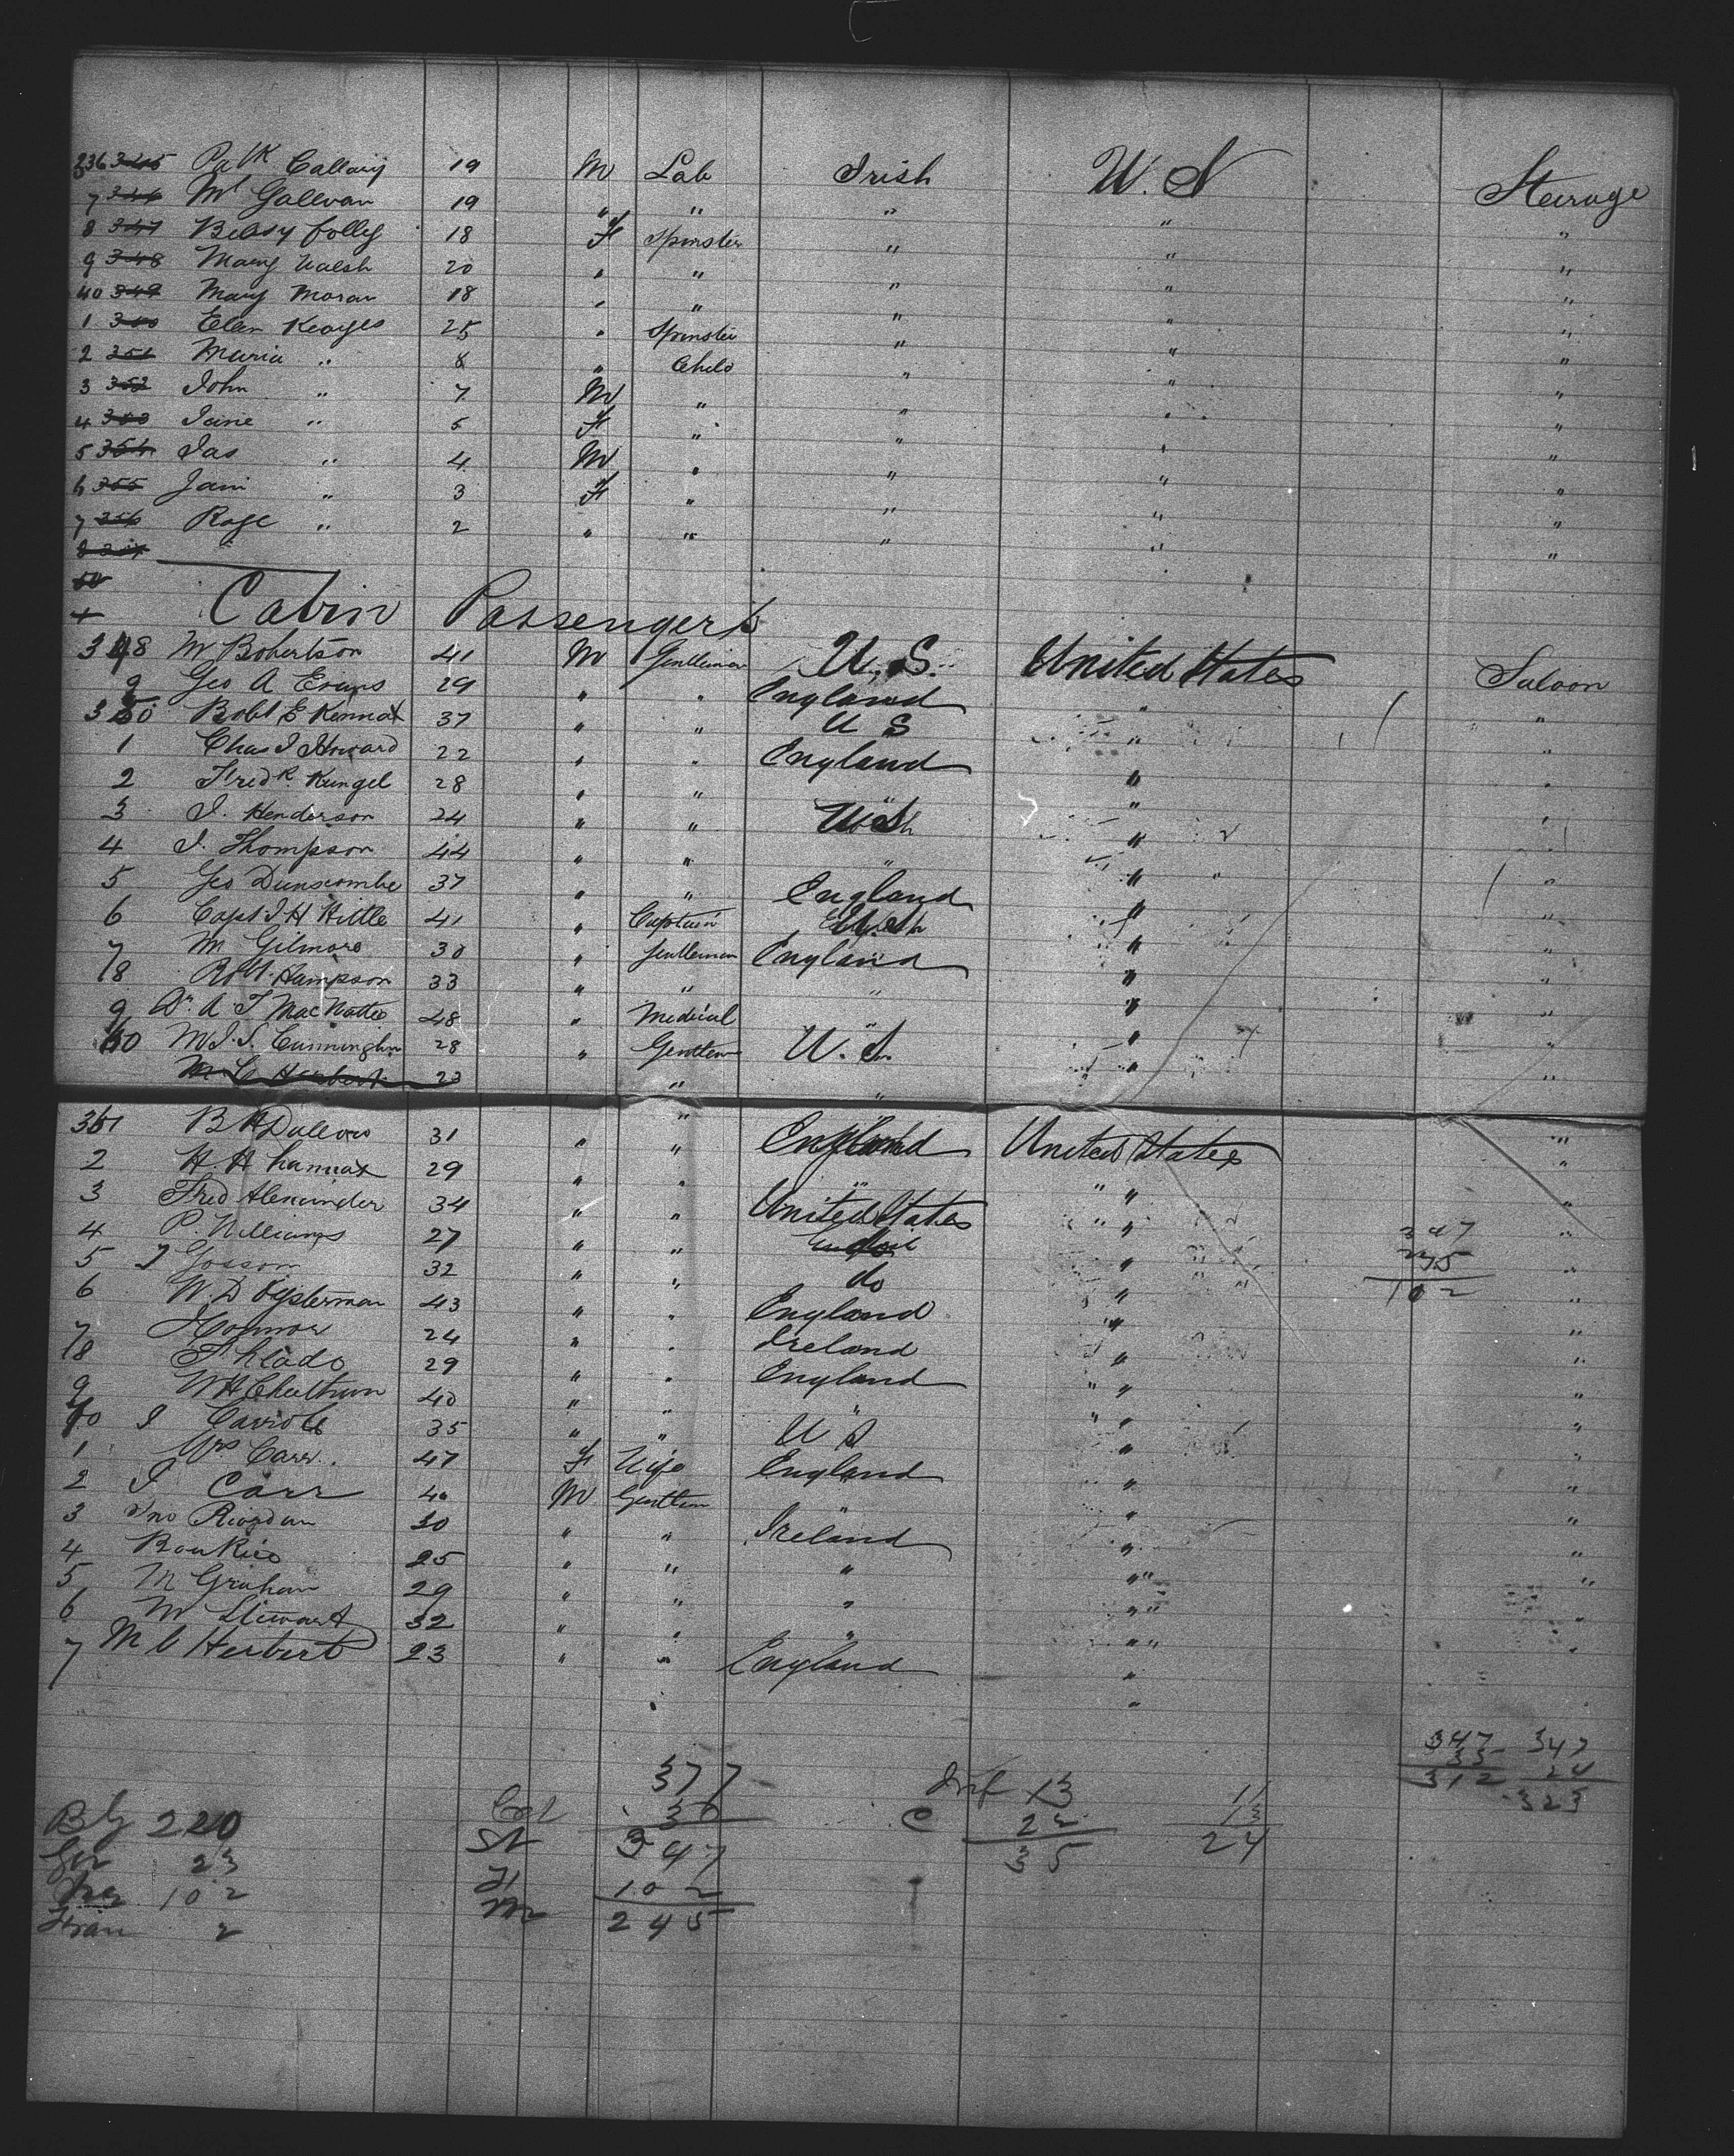 336 345 Patk Callary 19 M Lab Irish U. S Steerage
7 346 Mt Gallvan 19 " " " " "
8 347 Betsy Colley 18 F Spinster " " "
9 348 Mary Walsh 20 " " " " "
40 349 Mary Moran 18 " " " " "
1 350 Ellen Keayes 25 " Spinster " " "
2 351 Maria " 8 " Child " " "
3 352 John " 7 M " " " "
4 353 Jane " 5 F " " " "
5 354 Jas " 4 M " " " "
6 355 Jani " 3 F " " " "
7 356 Rose " 2 " " " " "
Cabin Passengers
348 M Robertson 41 M Gentleman U. S. United States Saloon
9 Geo A Evans 29 " " England " "
350 Robt E Kennat 37 " " U S " "
1 Chas J Howard 22 " " England " "
2 Fredk. Kungel 28 " " " " "
3 J. Henderson 24 " " U S " "
4 J. Thompson 44 " " " " "
5 Geo Dunscombe 37 " " England " "
6 Capt J H Hittle 41 " Captain " "
7 M Gilmore 30 " Gentleman England " "
8 Robt. Hampson 33 " " " " "
9 Dr. A T MacNattee 48 " Medical " " "
60 M J. S. Cunningham 28 " Gentlem U. S. " "
M C Herbert 23 " "
361 B H Dullow 31 " " England United States "
2 H. H 29 " " " " "
3 Fred Alexander 34 " " United States " "
4 P. Williams 27 " " do " " 347
5 J Gosson 32 " " do " " 245
6 W. D Oysterman 43 " " England " " 102
7 Honnor 24 " " Ireland " "
8 F. Slado 29 " " England " "
9 W H Cheethum 40 " " " " "
70 J 35 " " U S " "
1 Mrs Carr. 47 F Wife England " "
2 J Carr 40 M Gentlem " " "
3 Jno Riordan 30 " " Ireland " "
4 25 " " " " "
5 M Graham 29 " " " " "
6 M Stewart 32 " " " " "
7 M C Herbert 23 " " England "
377 Inf 13 11 347 347
30 C 22 13 35 24
St 347 35 24 312 323
F 102
M 245
220
Ger 23
102
Fran 2